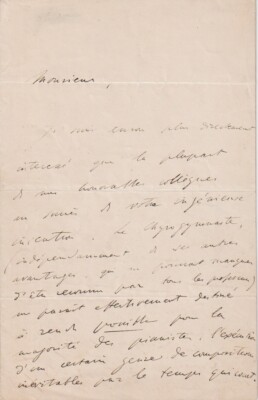 Monsieur,
Je suis encore plus directement
intéressé que la plupart
de nos honorables collègues
au succès de votre ingénieuse
invention. Le
(indépendamment de ses autres
avantages, qui ne pourront manquer
d'être reconnus par tous les professeurs)
me paraît effectivement destiné
à rendre possible pour la
majorité des pianistes, l'exécution
d'un certain genre de composition
inévitables par le temps qui court.